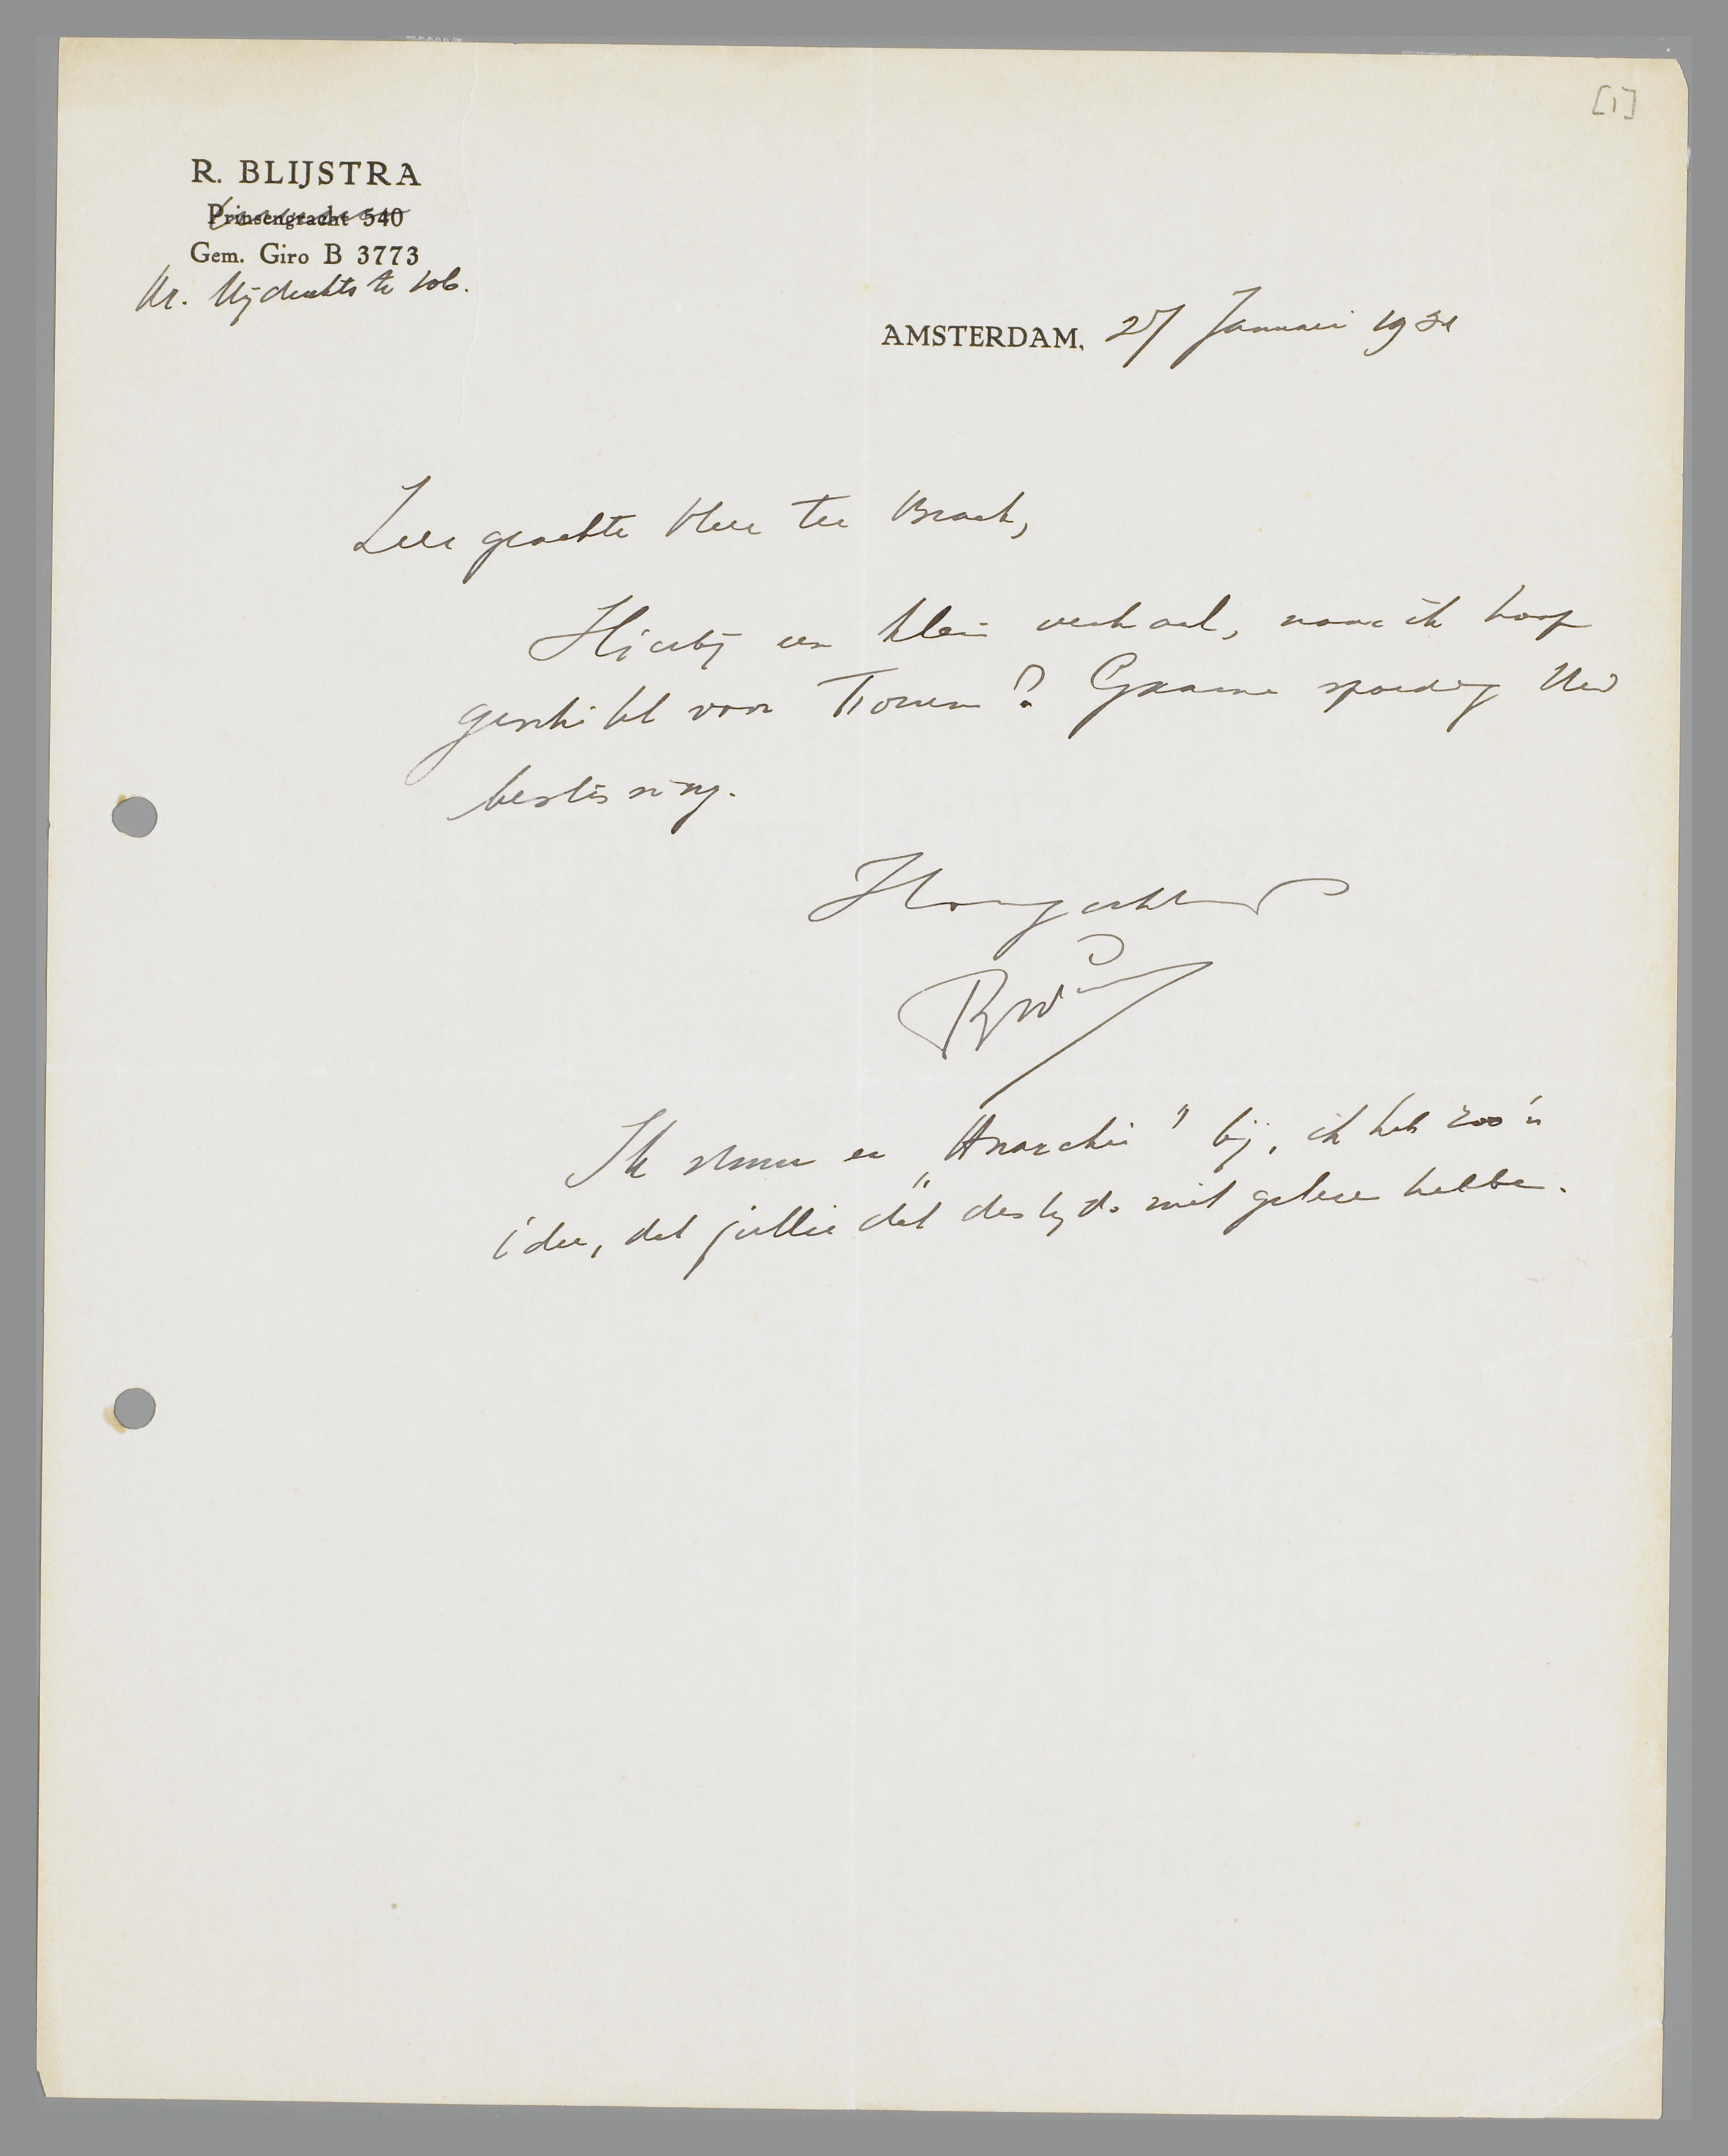 [1]
R. BLIJSTRA
Prinsengracht 540
Gem. Giro B 3773
AMSTERDAM, 27 Januari 1931
Zeer geachte Heer Ter Braak,
Hierbij een klein verhaal, naar ik hoop
geschikt voor Forum? Gaarne spoedig Uw
beslissing.
Hoogachtend
Ik stuur er „Anarchie" bij, ik heb zoo'n
idee, dat jullie dat destijds niet gelezen hebben.